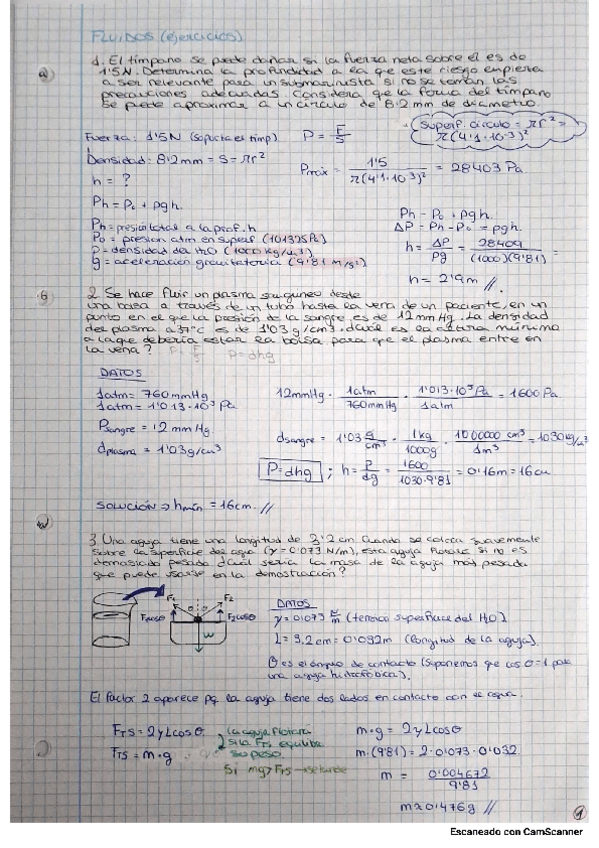 FLUIDOS (ejercicios)
1. El tímpano se puede dañar si la fuerza neta sobre él es de
1'5N. Determina la profundidad a la que este riesgo empieza
a ser relevante para un submarinista si no se toman las
precauciones adecuadas. Considera que la forma del tímpano
se puede aproximar a un círculo de 8'2 mm de diámetro.
Superf. círculo = πr² =
π(4'1·10⁻³)²
Fuerza: 1'5N (soporta es tímp)
P = F/S
Densidad: 8'2mm = S = πr²
Pmáx = 1'5 / π(4'1·10⁻³)² = 28403 Pa
h = ?
Ph = P₀ + ρgh
Ph = presión total a la prof. h
P₀ = presion atm en superf (101325Pa)
ρ = densidad del H₂O (1000 kg/m³)
g = aceleración gravitatoria (9'81 m/s²)
Ph - P₀ + ρgh.
ΔP = Ph - P₀ = ρgh.
h = ΔP/ρg = 28409 / (1000)(9'81) =
h = 2'9m //
2. Se hace fluir un plasma sanguíneo desde
una bolsa a través de un tubo hasta la vena de un paciente, en un
punto en el que la presión de la sangre es de 12 mm Hg. La densidad
del plasma a 37°C es de 1'03 g/cm³. ¿Cuál es la altura mínima
a la que debería estar la bolsa para que el plasma entre en
la vena?
P = F/S
P = dhg
DATOS
1atm = 760 mmHg
1atm = 1'013·10⁵ Pa
12mmHg · 1atm/760mmHg · 1'013·10⁵ Pa/1atm = 1600 Pa
Psangre = 12 mm Hg.
dplasma = 1'03 g/cm³
dsangre = 1'03 g/cm³ · 1kg/1000g · 1000000 cm³/1m³ = 1030 kg/m³
P = dhg ; h = P/dg = 1600/1030·9'81 = 0'16m = 16cm
SOLUCIÓN ⇒ hmín = 16cm. //
3. Una aguja tiene una longitud de 3'2 cm. Cuando se coloca suavemente
sobre la superficie del agua (γ = 0'073 N/m), esta aguja flotará si no es
demasiado pesada. ¿Cuál sería la masa de la aguja más pesada
que puede usarse en la demostración?
F₁
F₂
θ
F₁cosθ
F₂cosθ
w
DATOS
γ = 0'073 N/m (tensión superficial del H₂O)
L = 3,2cm = 0'032m (longitud de la aguja).
θ es el ángulo de contacto (suponemos que cos θ = 1 para
una aguja hidrofóbica).
El factor 2 aparece pq la aguja tiene dos lados en contacto con el agua.
FTS = 2γLcosθ
FTS = m·g
la aguja flotará
si la FTS equilibra
su peso.
Si mg > FTS → se hunde
m·g = 2γLcosθ
m·(9'81) = 2·0'073·0'032
m = 0'004672 / 9'81
m ≈ 0'476g //
1
Escaneado con CamScanner